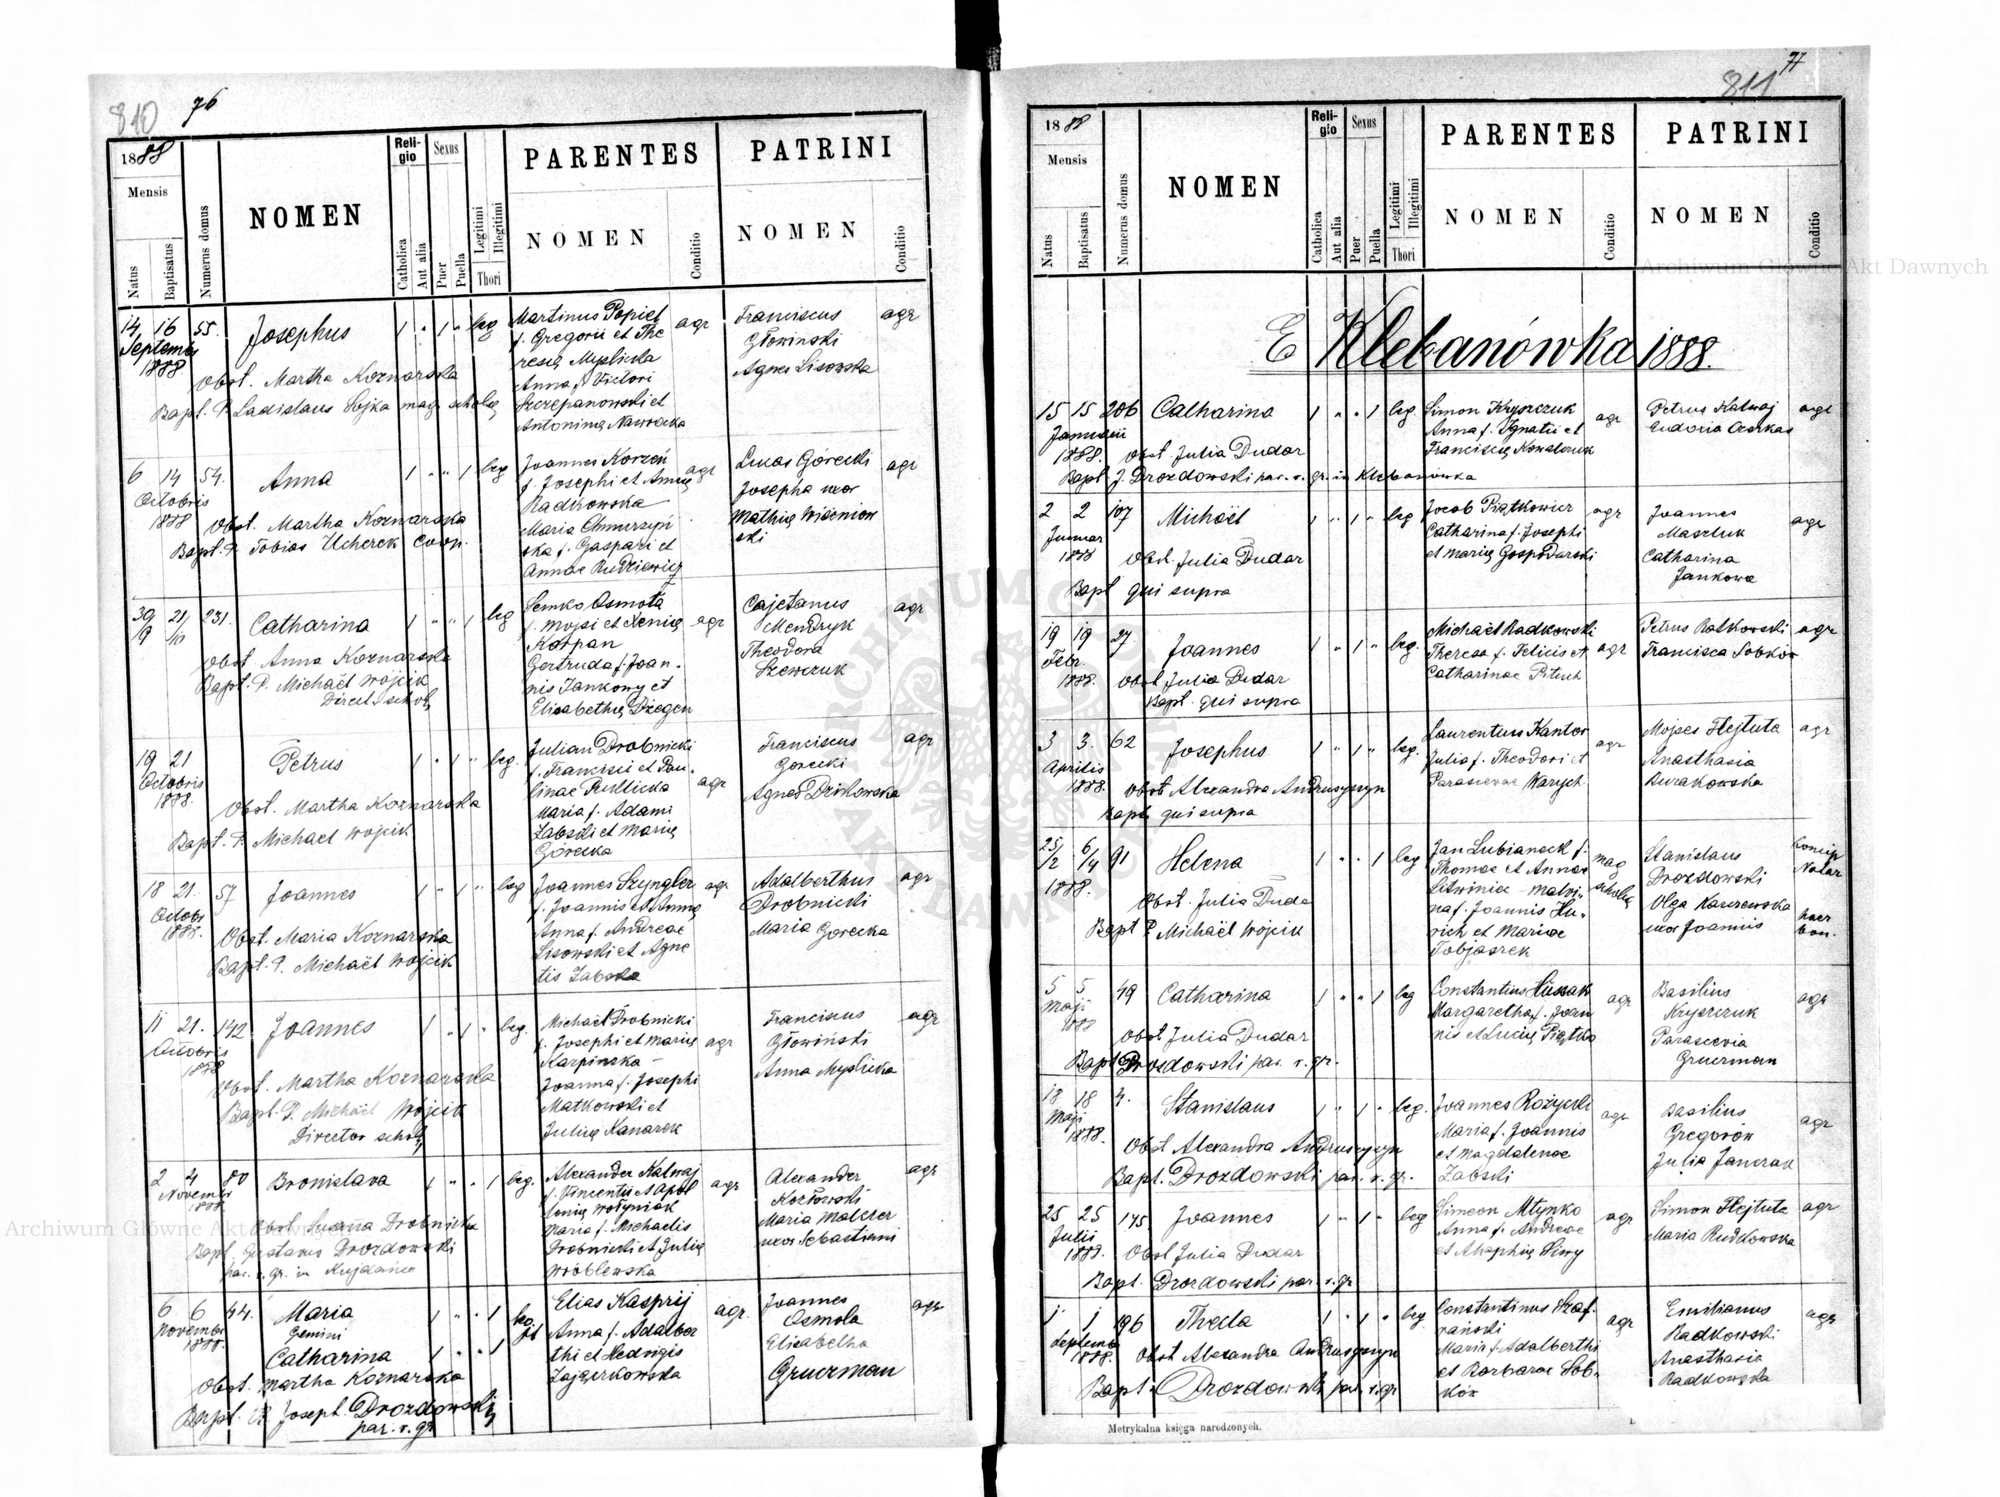 810 76
1888
Mensis
Natus
Baptisatus
Numerus domus
NOMEN
Religio
Catholica
Aut alia
Sexus
Puer
Puella
Legitimi
Illegitimi
Thori
PARENTES
NOMEN
Conditio
PATRINI
NOMEN
Conditio
14 16 55. Josephus 1 " 1 " leg
Septembr
1888
Obst. Martha Koznarska
Bapt. P. Ladislaus Sojka mag. scholę
Martinus Popiel
f. Gregorii et The
resię Myslicka
Anna f. Victori
Szczepanowski et
Antoninę Nawrocka
agr
Franciscus
Głowinski
Agnes Lisowska
agr
6 14 54. Anna 1 " " 1 leg
Octobris
1888
Obst. Martha Koznarska
Bapt. P. Tobias Ucherek Coop.
Joannes Korzeń
f. Josephi et Annę
Radkowska
Maria Chmurzyń
ska f. Gaspari et
Annae Rudkiewicz
agr
Lucas Górecki
Josepha uxor
Mathię Wiśniow
ski
agr
30/9 21/10 231. Catharina 1 " " 1 leg
Obst. Anna Koznarska
Bapt. P. Michaël Wojcik
Direct. scholę
Semko Osmota
f. Mojsi et Xenię
Karpan
Gertruda f. Joan-
nis Jankowy et
Elisabethę Dżegen
agr
Cajetanus
Mendryk
Theodora
Szewczuk
agr
19 21 Petrus 1 " 1 " leg.
Octobris
1888.
Obst. Martha Koznarska
Bapt. P. Michaël Wojcik
Julian Drobnicki
f. Francisci et Pau-
linae Rudlicka
Maria f. Adami
Zabski et Marię
Górecka
agr
Franciscus
Gorecki
Agnes Dzikowska
agr
18 21. 57 Joannes 1 " 1 " leg
Octobr
1888.
Obst. Maria Koznarska
Bapt. P. Michaël Wojcik
Joannes Szyngler
f. Joannis et Annę
Anna f. Andreae
Lisowski et Agne
tis Zabska
agr
Adalberthus
Drobnicki
Maria Gorecka
agr
11 21. 142 Joannes 1 " 1 " leg.
Octobris
1888
Obst. Martha Koznarska
Bapt. P. Michaël Wojcik
Director scholę
Michaël Drobnicki
f. Josephi et Marię
Karpinska -
Joanna f. Josephi
Matkowski et
Julię Kanarek
agr
Franciscus
Głowinski
Anna Myslicka
agr
2 4 80 Bronislava 1 " " 1 leg.
Novembr
1888
Obst. Susana Drobnicka
Bapt. Gustavus Drozdowski
par. r. gr. in Kujdańce
Alexander Kalwaj
f. Vincentii et Apol
lonię Wołyniak
Maria f. Michaelis
Drobnicki et Julię
Wróblewska
agr
Alexander
Kozłowski
Maria Malczer
uxor Sebastiani
agr
6 6 44. Maria 1 " " 1 leg
Novembr
1888.
Gemini
Catharina 1 " " 1
Obst. Martha Koznarska
Bapt. Joseph. Drozdowski
par. r. gr
Elias Kasprij
Anna f. Adalber
thi et Hedvigis
Zajączkowska
agr.
Joannes
Osmola
Elisabetha
Gruerman
agr
811 77
1888
Mensis
Natus
Baptisatus
Numerus domus
NOMEN
Religio
Catholica
Aut alia
Sexus
Puer
Puella
Legitimi
Illegitimi
Thori
PARENTES
NOMEN
Conditio
PATRINI
NOMEN
Conditio
E Klebanówka 1888.
15 15 206 Catharina 1 " " 1 leg.
Januarii
1888.
Obst. Julia Dudar
Bapt J. Drozdowski par. r. gr. in Klebanówka
Simon Kryszczuk
Anna f. Ignatii et
Franciscę Kowalczuk
agr
Petrus Kalwaj
agr
2 2 107 Michaël 1 " 1 " leg
Januar
1888
Obst. Julia Dudar
Bapt qui supra
Jacob Piątkowicz
Catharina f. Josephi
et Marię Gospodarski
agr
Joannes
Maszluk
Catharina
Jankowa
agr
19 19 27 Joannes 1 " 1 " leg.
Febr.
1888.
Obst Julia Dudar
Bapt. qui supra
Michaël Radkowski
Theresa f. Felicis et
Catharinae Pituch
agr
Petrus Ratkowski
Francisca Sobków
agr
3 3. 62 Josephus 1 " 1 " leg.
Aprilis
1888.
Obst Alexandra Andrusyszyn
Bapt. qui supra
Laurentius Kantor
Julia f. Theodori et
Parascevae Warych
agr
Mojses Hejtuta
Anasthasia
Burakowska
agr
25/2 6/4 91 Helena 1 " " 1 leg
1888.
Obst. Julia Duda
Bapt P. Michaël Wojcik
Jan Lubianeck f.
Thomae et Annae
Litwinie - Malwi-
na f. Joannis Hu-
rich et Mariae
Tobjaszek
mag
scholę
Stanislaus
Drozdowski
Olga Karczewska
uxor Joannis
Concip
Notar
haer
bon.
5 5 49 Catharina 1 " " 1 leg
Maji
1888
Obst Julia Dudar
Bapt Drozdowski par. r. gr.
Constantius Hussak
Margaretha f. Joan
nis et Lucię Piątko
agr
Basilius
Kryszczuk
Parascevia
Gruerman
agr
18 18 4. Stanislaus 1 " 1 " leg.
Maji
1888.
Obst Alexandra Andrusyszyn
Bapt. Drozdowski par. r. gr.
Joannes Rożycki
Maria f. Joannis
et Magdalenae
Zabski
agr
Basilius
Gregorów
Julia Janczak
agr
25 25 175. Joannes 1 " 1 " leg
Julii
1888.
Obst Julia Dudar
Bapt. Drozdowski par. r. gr
Simeon Mlynko
Anna f. Andreae
et Ahaphię Siwy
agr
Simon Hejtuta
Maria Rudkowska
agr
1 1 196 Thecla 1 " " 1 leg
Septembr
1888.
Obst Alexandra Andrusyszyn
Bapt. Drozdowski par. r. gr
Constantinus Szaf-
rański
Maria f. Adalberthi
et Barbarae Sob-
ków
agr
Emilianus
Radkowski
Anasthasia
Radkowska
agr
Metrykalna księga narodzonych.
Archiwum Główne Akt Dawnych
Archiwum Główne Akt Dawnych
ARCHIWUM GŁÓWNE AKT DAWNYCH